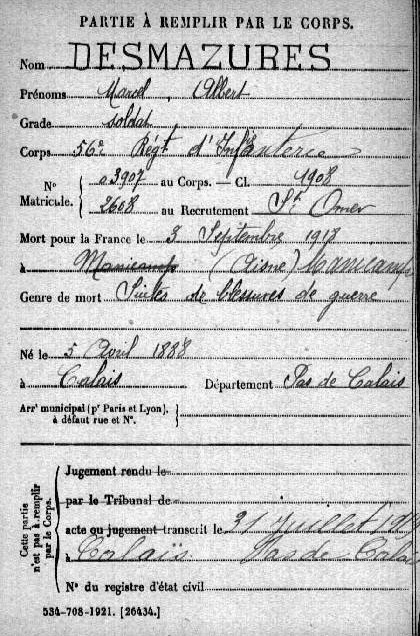 PARTIE À REMPLIR PAR LE CORPS.
Nom DESMAZURES
Prénoms Marcel, Albert
Grade soldat
Corps 56e Régt d'Infanterie
N° Matricule. { 03907 au Corps. — Cl. 1908
2608 au Recrutement St Omer
Mort pour la France le 3 Septembre 1918
à Manicamp (Aisne) Manicamp
Genre de mort Suites de blessures de guerre
Né le 5 Avril 1888
à Calais Département Pas de Calais
Arrt municipal (pr Paris et Lyon), à défaut rue et N°. }
Cette partie n'est pas à remplir par le Corps.
Jugement rendu le
par le Tribunal de
acte ou jugement transcrit le 31 juillet
à Calais Pas de Calais
N° du registre d'état civil
534-708-1921. [26434.]